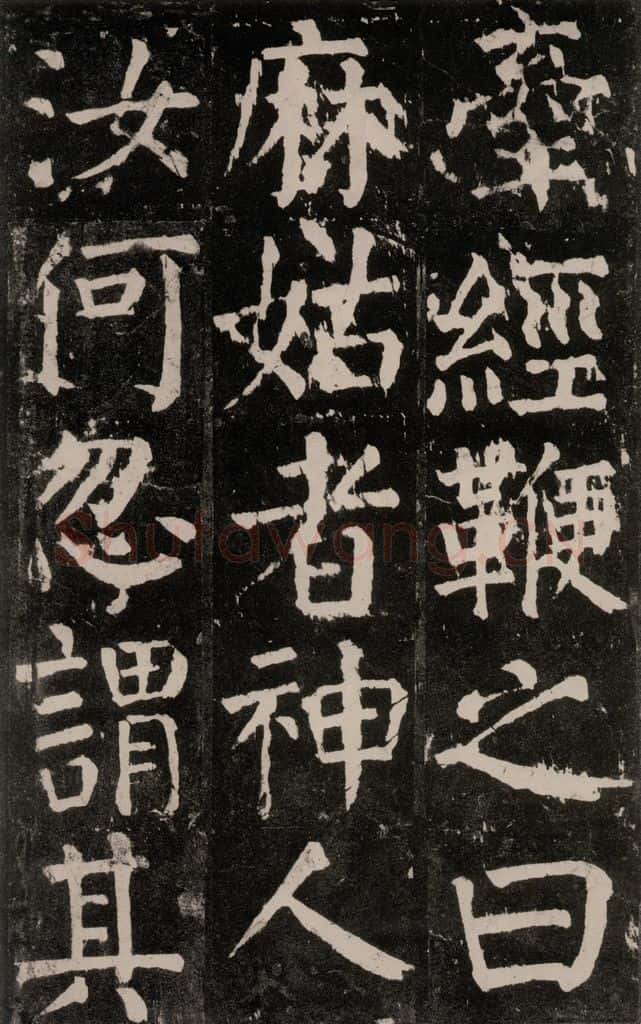 牽經鞭之曰
麻姑者神人
汝何忽謂其
Shufawang.cn